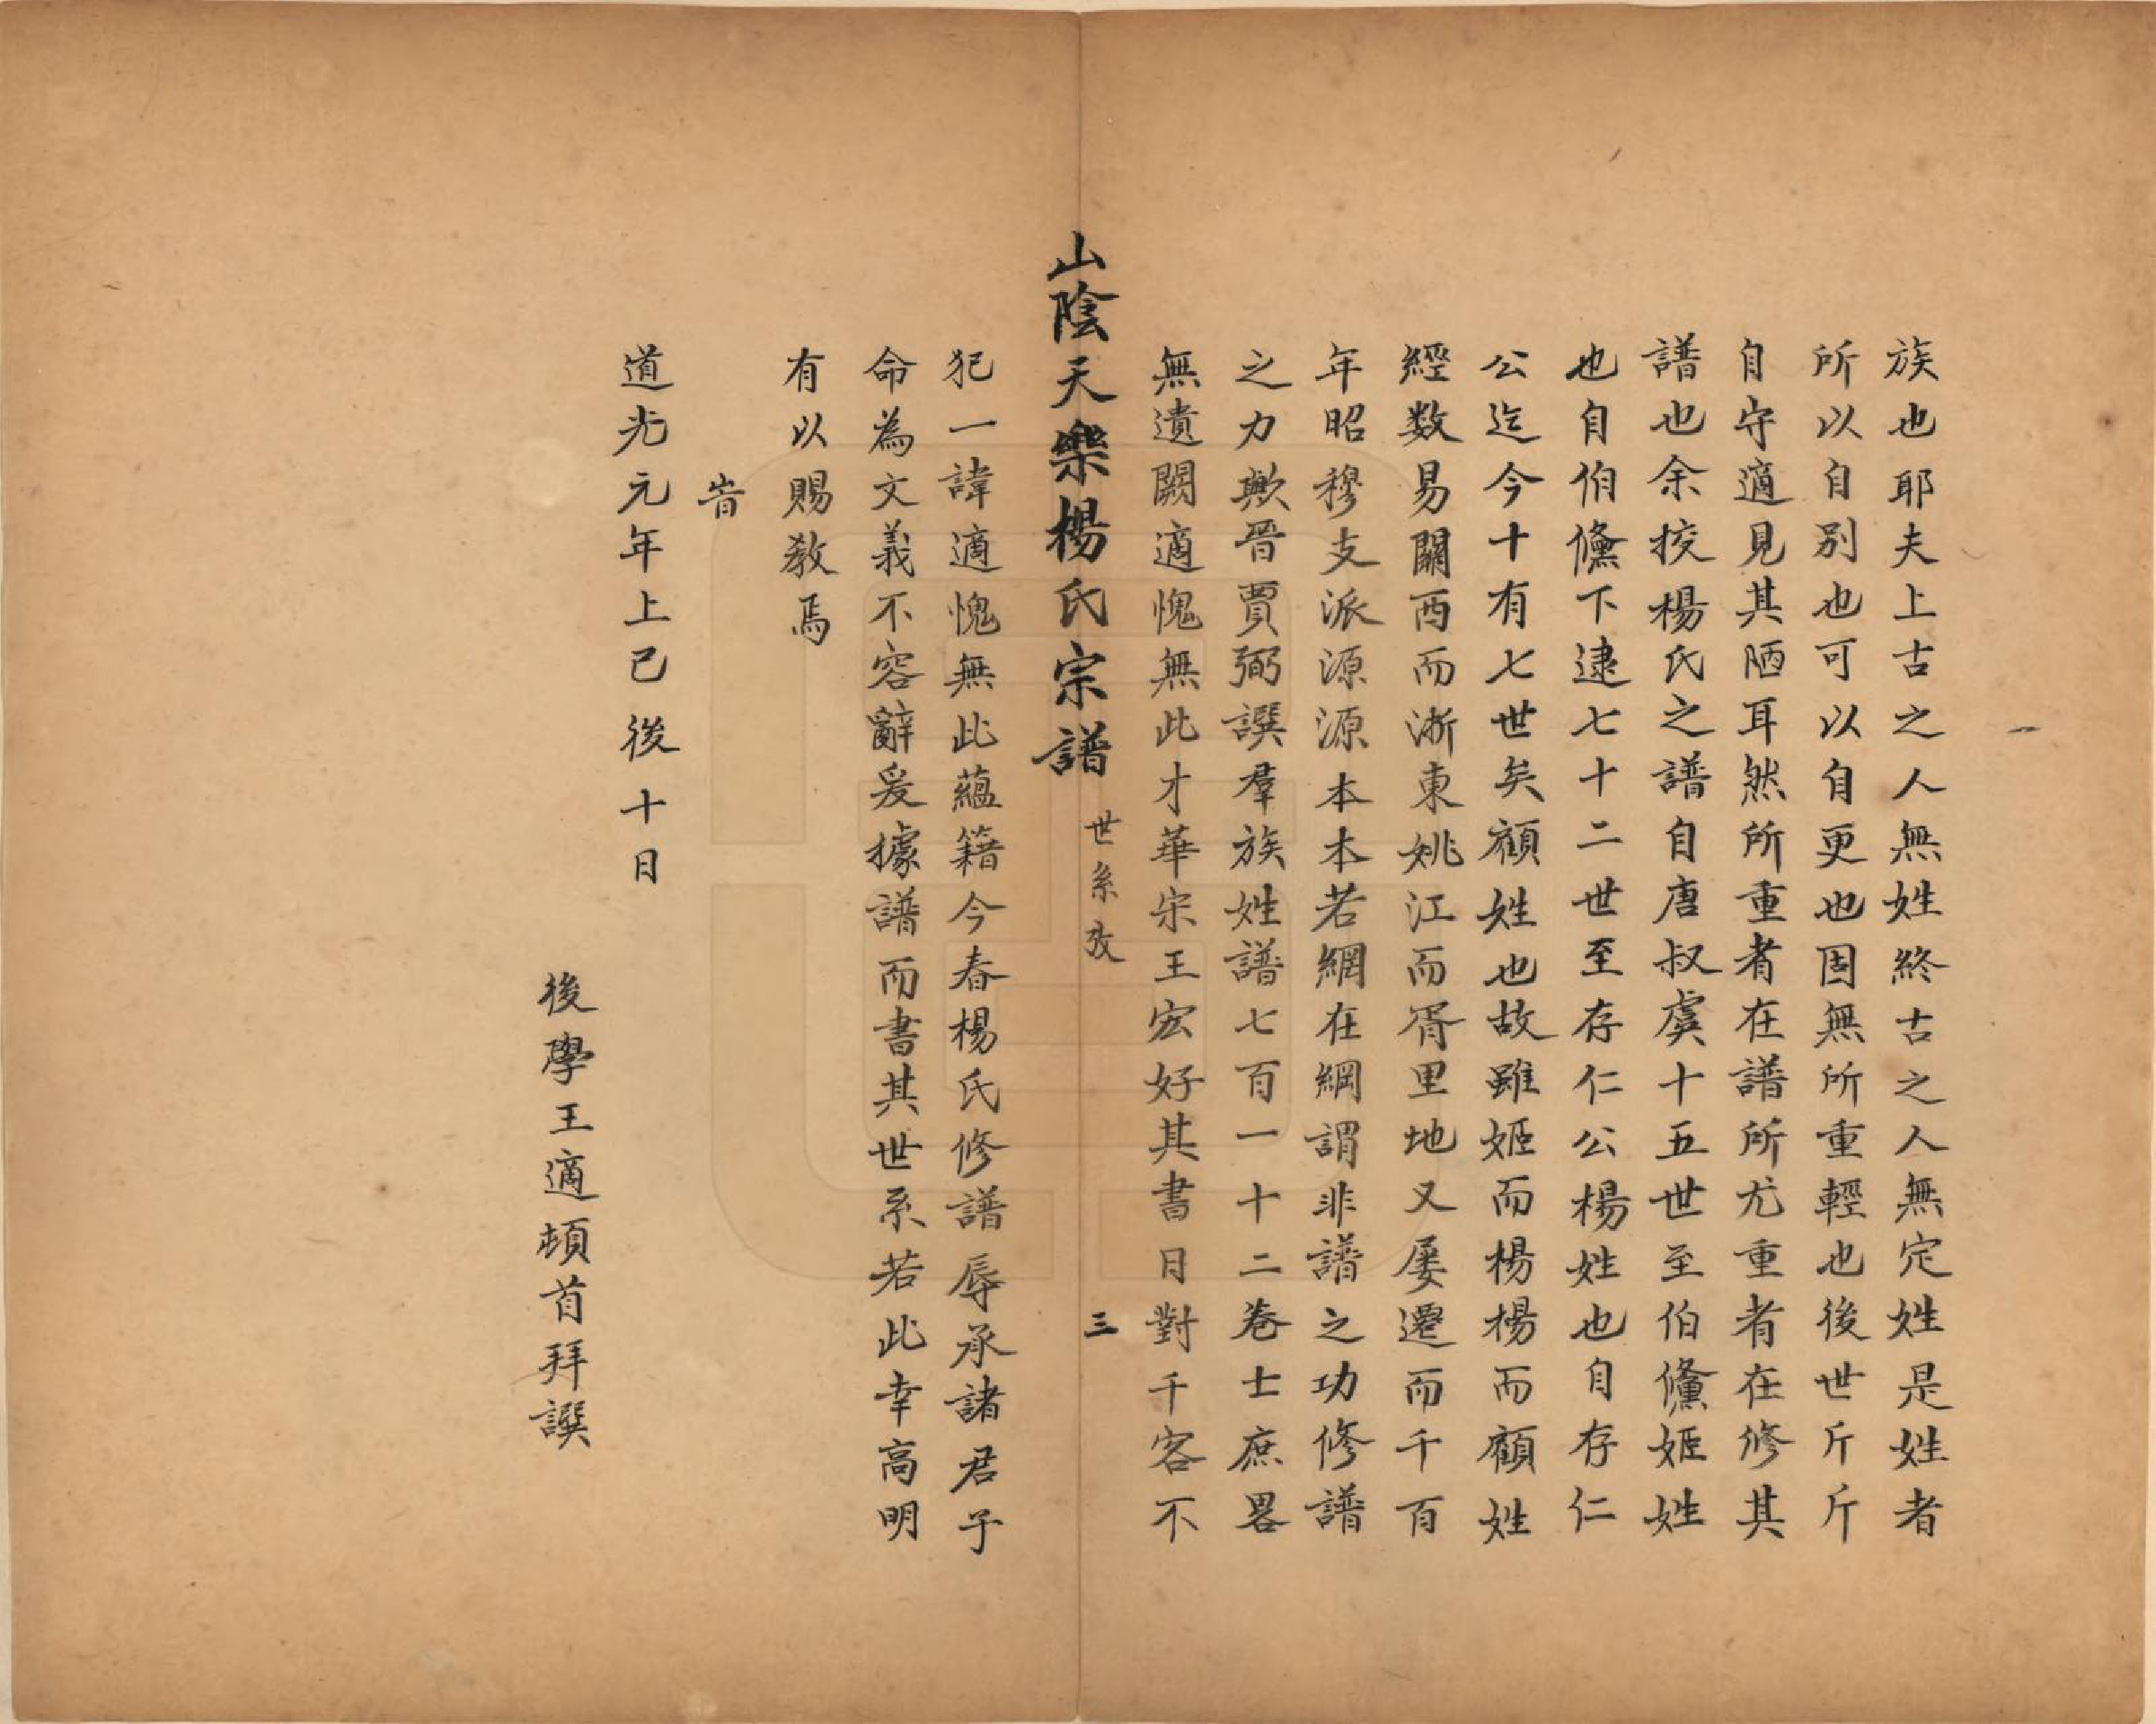 族也耶夫上古之人無姓終古之人無定姓是姓者
所以自別也可以自更也固無所重輕也後世斤斤
自守適見其陋耳然所重者在譜所尤重者在修其
譜也余挍楊氏之譜自唐叔虞十五世至伯儵姬姓
也自伯儵下逮七十二世至存仁公楊姓也自存仁
公迄今十有七世矣顧姓也故雖姬而楊楊而顧姓
經数易關西而浙東姚江而胥里地又屡遷而千百
年昭穆支派源源本本若網在綱謂非譜之功修譜
之力歟晉賈弼譔羣族姓譜七百一十二卷士庶畧
無遺闕適愧無此才華宋王宏好其書日對千客不
山陰天樂楊氏宗譜 世系攷 三
犯一諱適愧無此蘊籍今春楊氏修譜辱承諸君子
命為文義不容辭爰據譜而書其世系若此幸高明
有以賜教焉
旹
道光元年上巳後十日
後學王適頓首拜譔